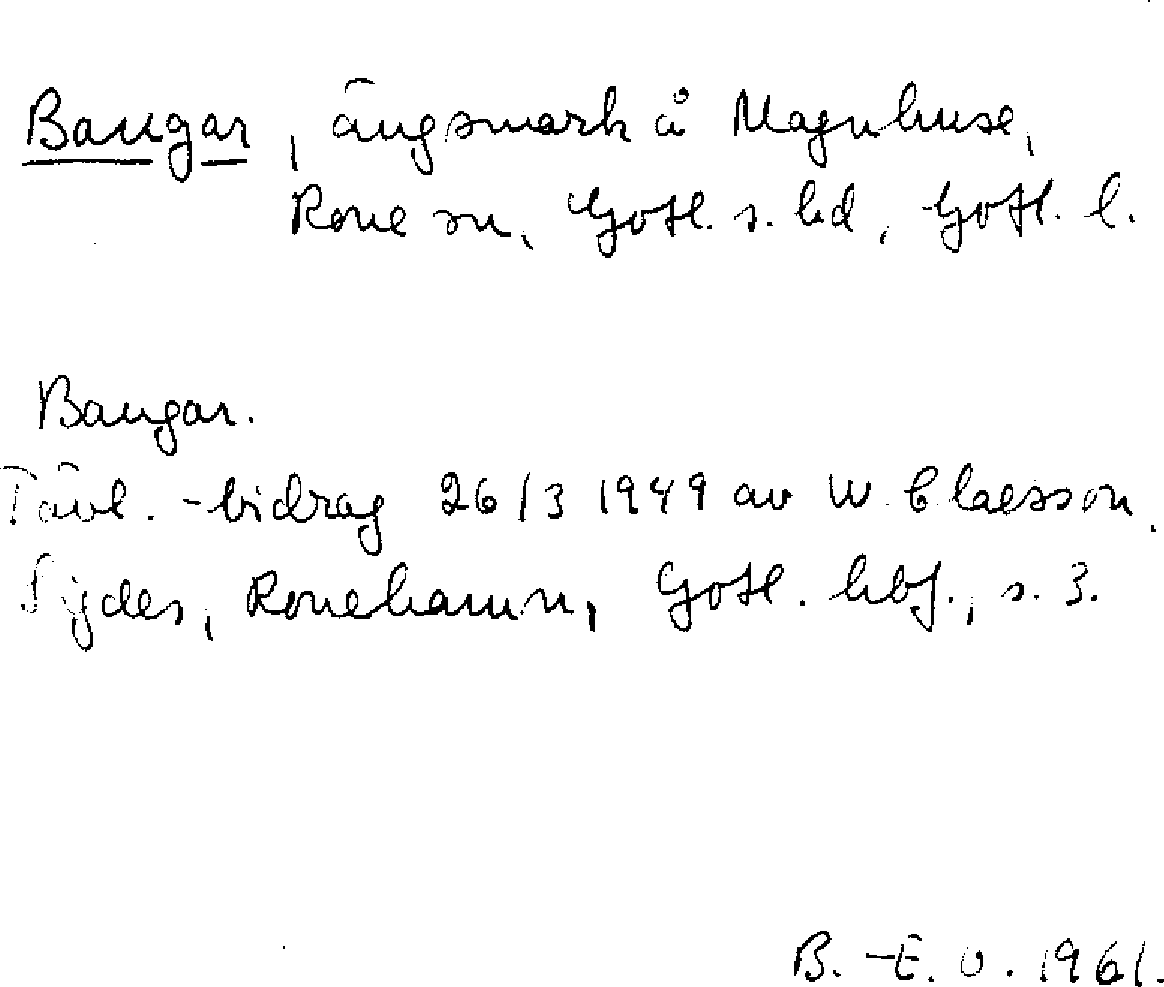 Baugar, ängsmark å Magnhuse,
Rone sn, Gotl. s. hd, Gotl. l.
Baugar.
Tävl. -bidrag 26/3 1949 av W. Claesson,
Sigdes, Ronehamn, Gotl. hbf., s. 3.
B.-E. O. 1961.